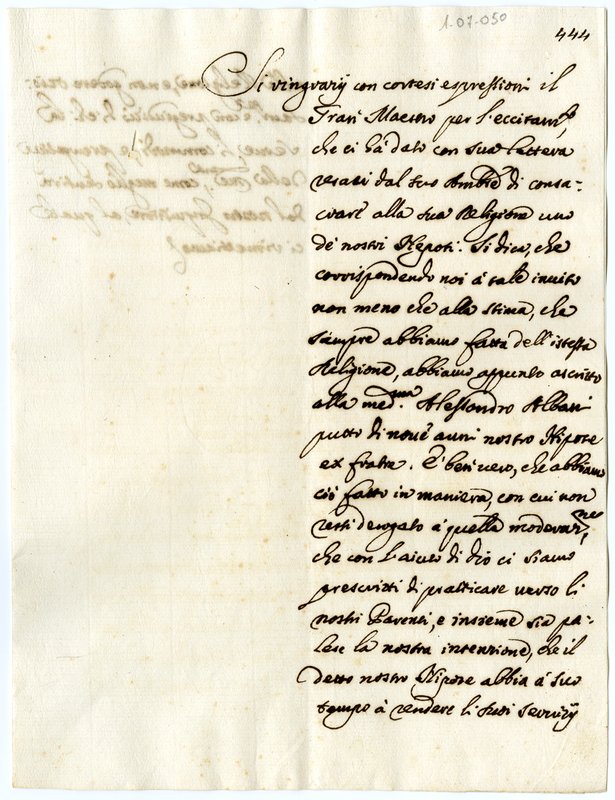 1-07-050
444
Si ringrazij con cortesi espressioni il
Gran Maestro per l'eccitam.to,
che ci hà dato con sua lettera
resaci dal suo Ambre di consa-
crare alla sua Religione uno
de nostri Nepoti. Si dica, che
corrispondendo noi à tale invito
non meno che alla stima, che
sempre abbiamo fatta dell'istessa
Religione, abbiamo appunto ascritto
alla med.ma Alessandro Albani
putto di nove anni nostro Nipote
ex fratre. È ben vero, che abbiamo
ciò fatto in maniera, con cui non
resti derogato à quella moderaz.ne,
che con l'aiuto di Dio ci siamo
prescritti di pratticare verso li
nostri Parenti, e insieme sia pa-
lese la nostra intenzione, che il
detto nostro Nipote abbia à suo
tempo à rendere li suoi servizij